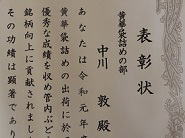 表彰状
黄華袋詰めの部
中川 敦 殿
あなたは令和元年
黄華袋詰めの出荷に於
優秀な成績を収め管内ぶど
銘柄向上に貢献されまし
その功績は顕著であり